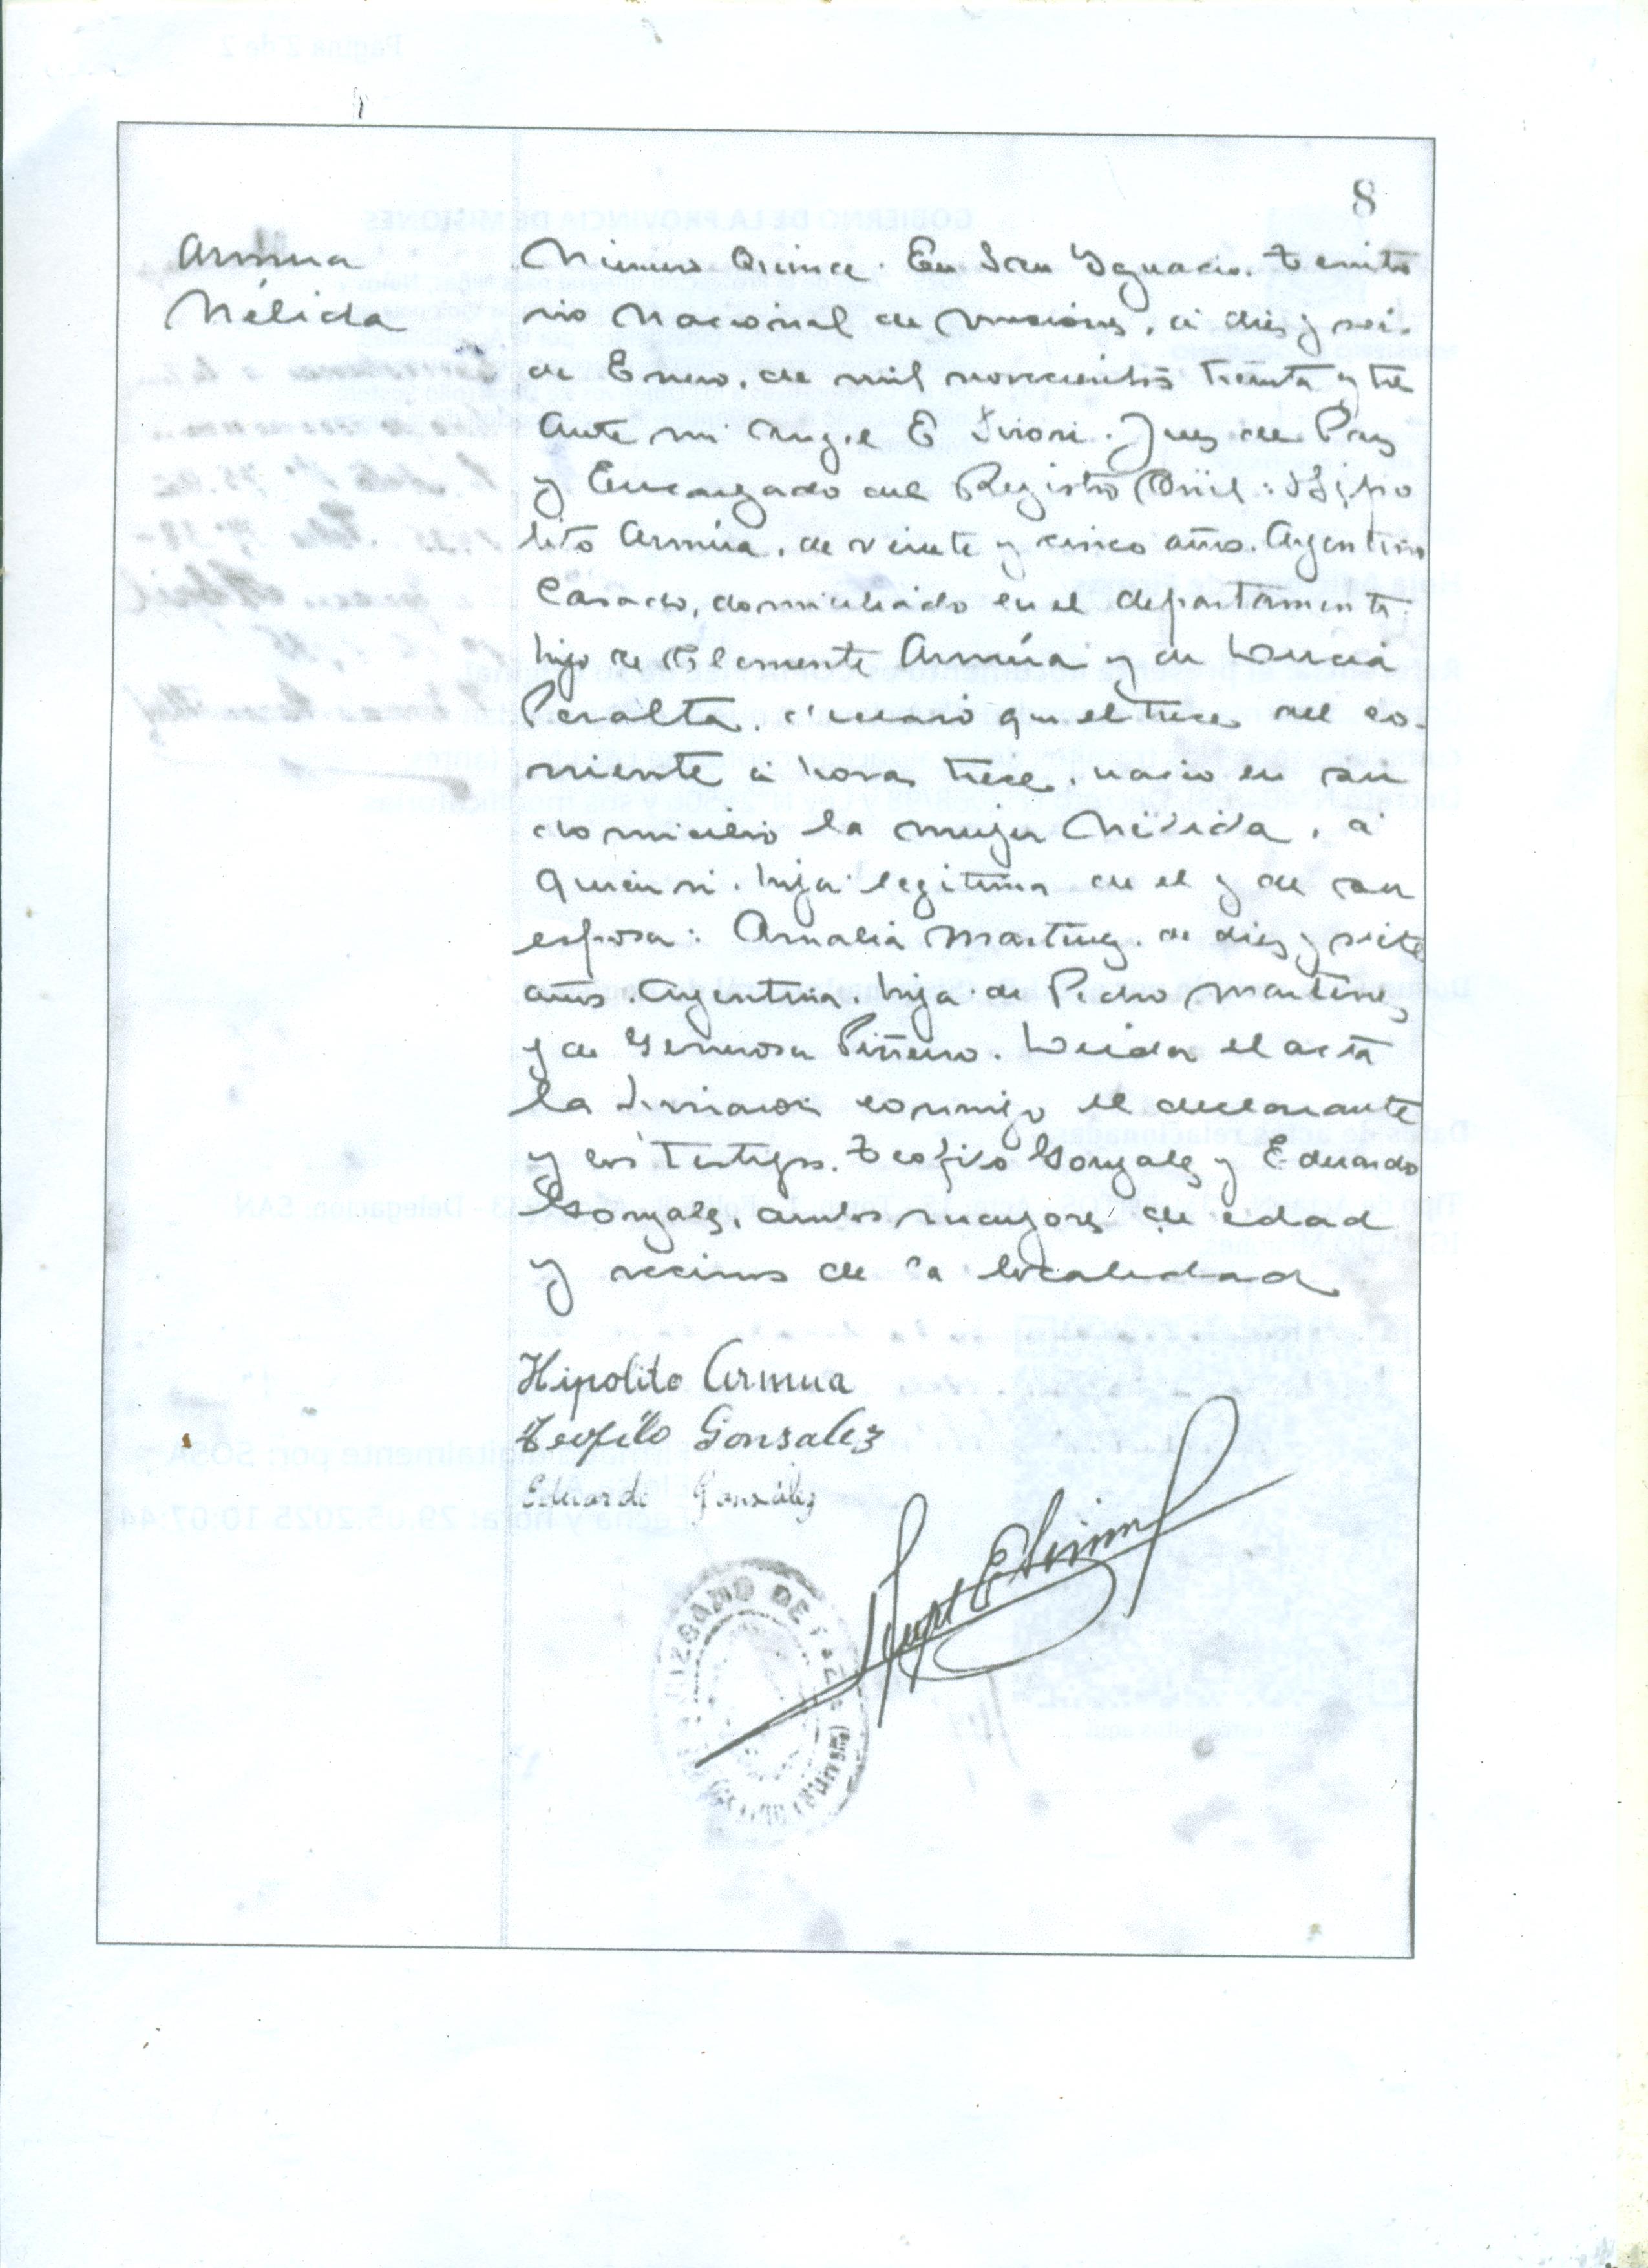 8
Armua
Nélida
Número Quince. En San Ygnacio. Territo
rio Nacional de Misiones, á diez y seis
de Enero, de mil novecientos treinta y tres
Ante mi Angel E Sirori. Juez de Paz
y Encargado del Registro Civil: Hipo
lito Armúa, de veinte y cinco años. Argentino
Casado, domiciliado en el departamento.
hijo de Clemente Armúa y de Lucia
Peralta, declaró que el trece del co-
rriente á horas trece, nació en su
domicilio la mujer Nélida, á
quien vi. hija legitima de el y de su
esposa: Amalia Martinez. de diez y siete
años. Argentina. hija de Pedro Martinez
y de Generosa Piñeiro. Leida el acta
la firmaron conmigo el declarante
y los testigos. Teofilo Gonzalez y Eduardo
Gonzalez, ambos mayores de edad
y vecinos de la localidad
Hipolito Armua
Teofilo Gonsalez
Eduardo González
JUZGADO DE PAZ